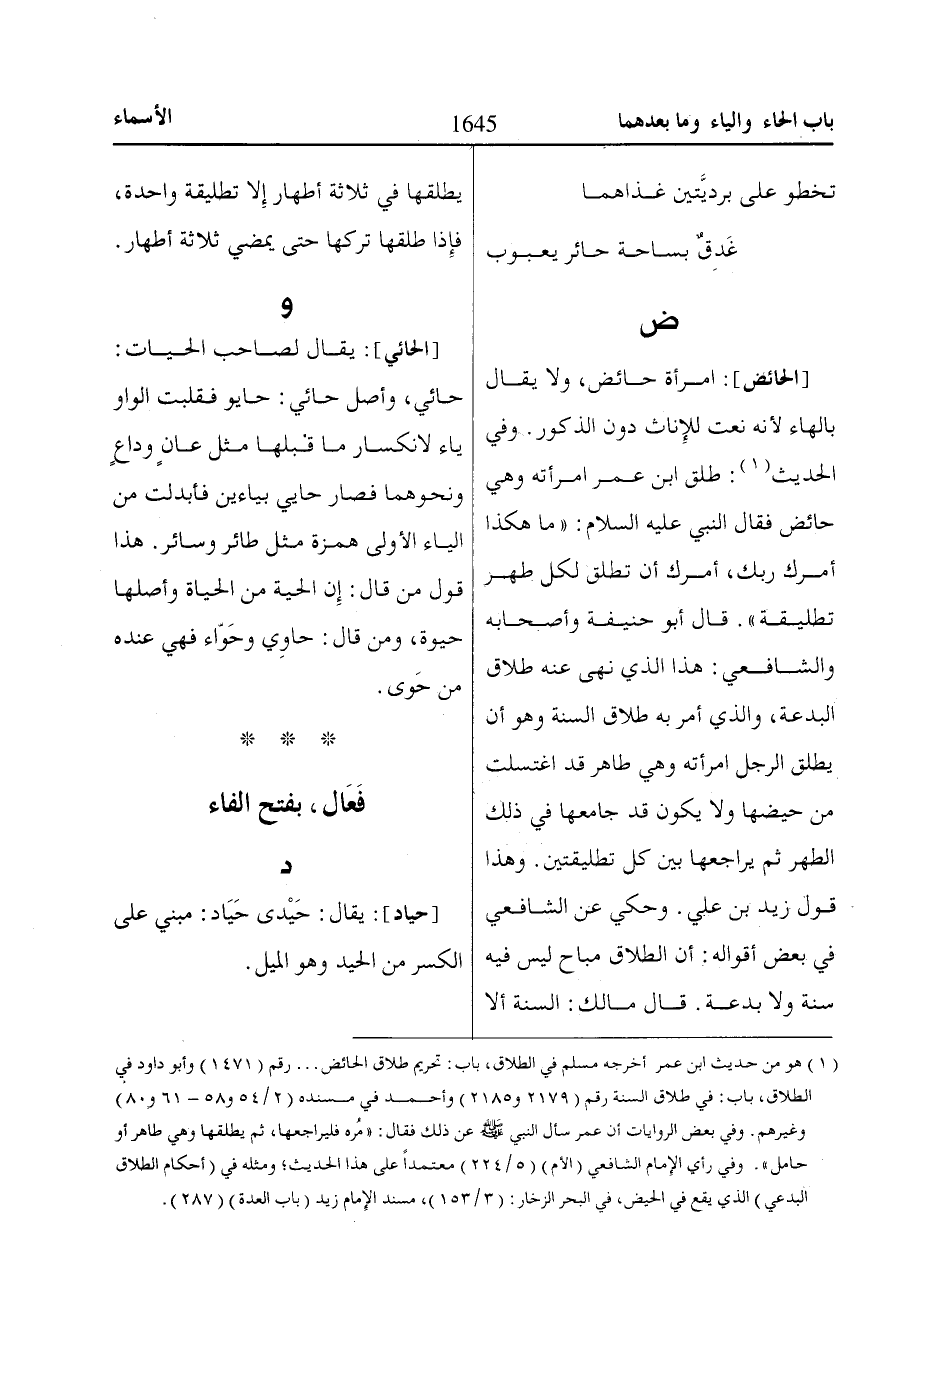 باب الحاء والياء وما بعدهما
1645
الأسماء
تخطو على برديَّتين غـذاهمـا
غَدقٌ بساحة حائر يعبوب
ض
[الحائض]: امرأة حائض، ولا يقال
بالهاء لأنه نعت للإناث دون الذكور. وفي
الحديث(١): طلق ابن عمر امرأته وهي
حائض فقال النبي عليه السلام: «ما هكذا
أمرك ربك، أمرك أن تطلق لكل طهر
تطليقة». قال أبو حنيفة وأصحابه
والشافعي: هذا الذي نهى عنه طلاق
البدعة، والذي أمر به طلاق السنة وهو أن
يطلق الرجل امرأته وهي طاهر قد اغتسلت
من حيضها ولا يكون قد جامعها في ذلك
الطهر ثم يراجعها بين كل تطليقتين. وهذا
قول زيد بن علي. وحكي عن الشافعي
في بعض أقواله: أن الطلاق مباح ليس فيه
سنة ولا بدعة. قال مالك: السنة ألا
يطلقها في ثلاثة أطهار إلا تطليقة واحدة،
فإذا طلقها تركها حتى يمضي ثلاثة أطهار.
و
[الحائي]: يقال لصاحب الحيات:
حائي، وأصل حائي: حايو فقلبت الواو
ياء لانكسار ما قبلها مثل عانٍ وداعٍ
ونحوهما فصار حايي بياءين فأبدلت من
الياء الأولى همزة مثل طائر وسائر. هذا
قول من قال: إن الحية من الحياة وأصلها
حيوة، ومن قال: حاوي وحَوّاء فهي عنده
من حَوى.
* * *
فَعَال، بفتح الفاء
د
[حياد]: يقال: حَيْدى حَيَاد: مبني على
الكسر من الحيد وهو الميل.
(١) هو من حديث ابن عمر أخرجه مسلم في الطلاق، باب: تحريم طلاق الحائض... رقم (١٤٧١) وأبو داود في
الطلاق، باب: في طلاق السنة رقم (٢١٧٩ و٢١٨٥) وأحمد في مسنده (٥٤/٢ و٥٨ – ٦١ و٨٠)
وغيرهم. وفي بعض الروايات أن عمر سأل النبي ﷺ عن ذلك فقال: «مُره فليراجعها، ثم يطلقها وهي طاهر أو
حامل». وفي رأي الإمام الشافعي (الأم) (٢٢٤/٥) معتمداً على هذا الحديث؛ ومثله في (أحكام الطلاق
البدعي) الذي يقع في الحيض، في البحر الزخار: (١٥٣/٣)، مسند الإمام زيد (باب العدة) (٢٨٧).